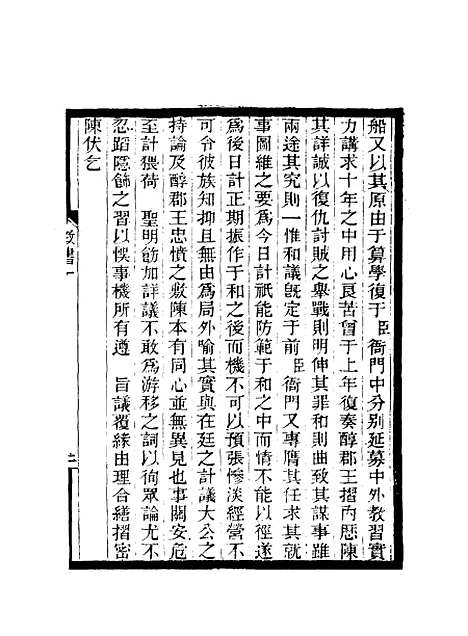 船又以其原由于算學復于臣衙門中分别延募中外教習實
力講求十年之中用心良苦曾于上年復奏醇郡王摺内歷陳
其詳誠以復仇討賊之舉戰則明伸其罪和則曲致其謀事雖
兩途其究則一惟和議既定于前臣衙門又專膺其任求其就
事圖維之要爲今日計祇能防範于和之中而情不能以徑遂
爲後日計正期振作于和之後而機不可以預張慘淡經營不
可令彼族知抑且無由爲局外喻其實與在廷之計議大公之
持論及醇郡王忠憤之敷陳本有同心並無異見也事關安危
至計猥荷 聖明飭加詳議不敢爲游移之詞以徇眾論尤不
忍蹈隱飾之習以悞事機所有遵 旨議覆緣由理合繕摺密
陳伏乞